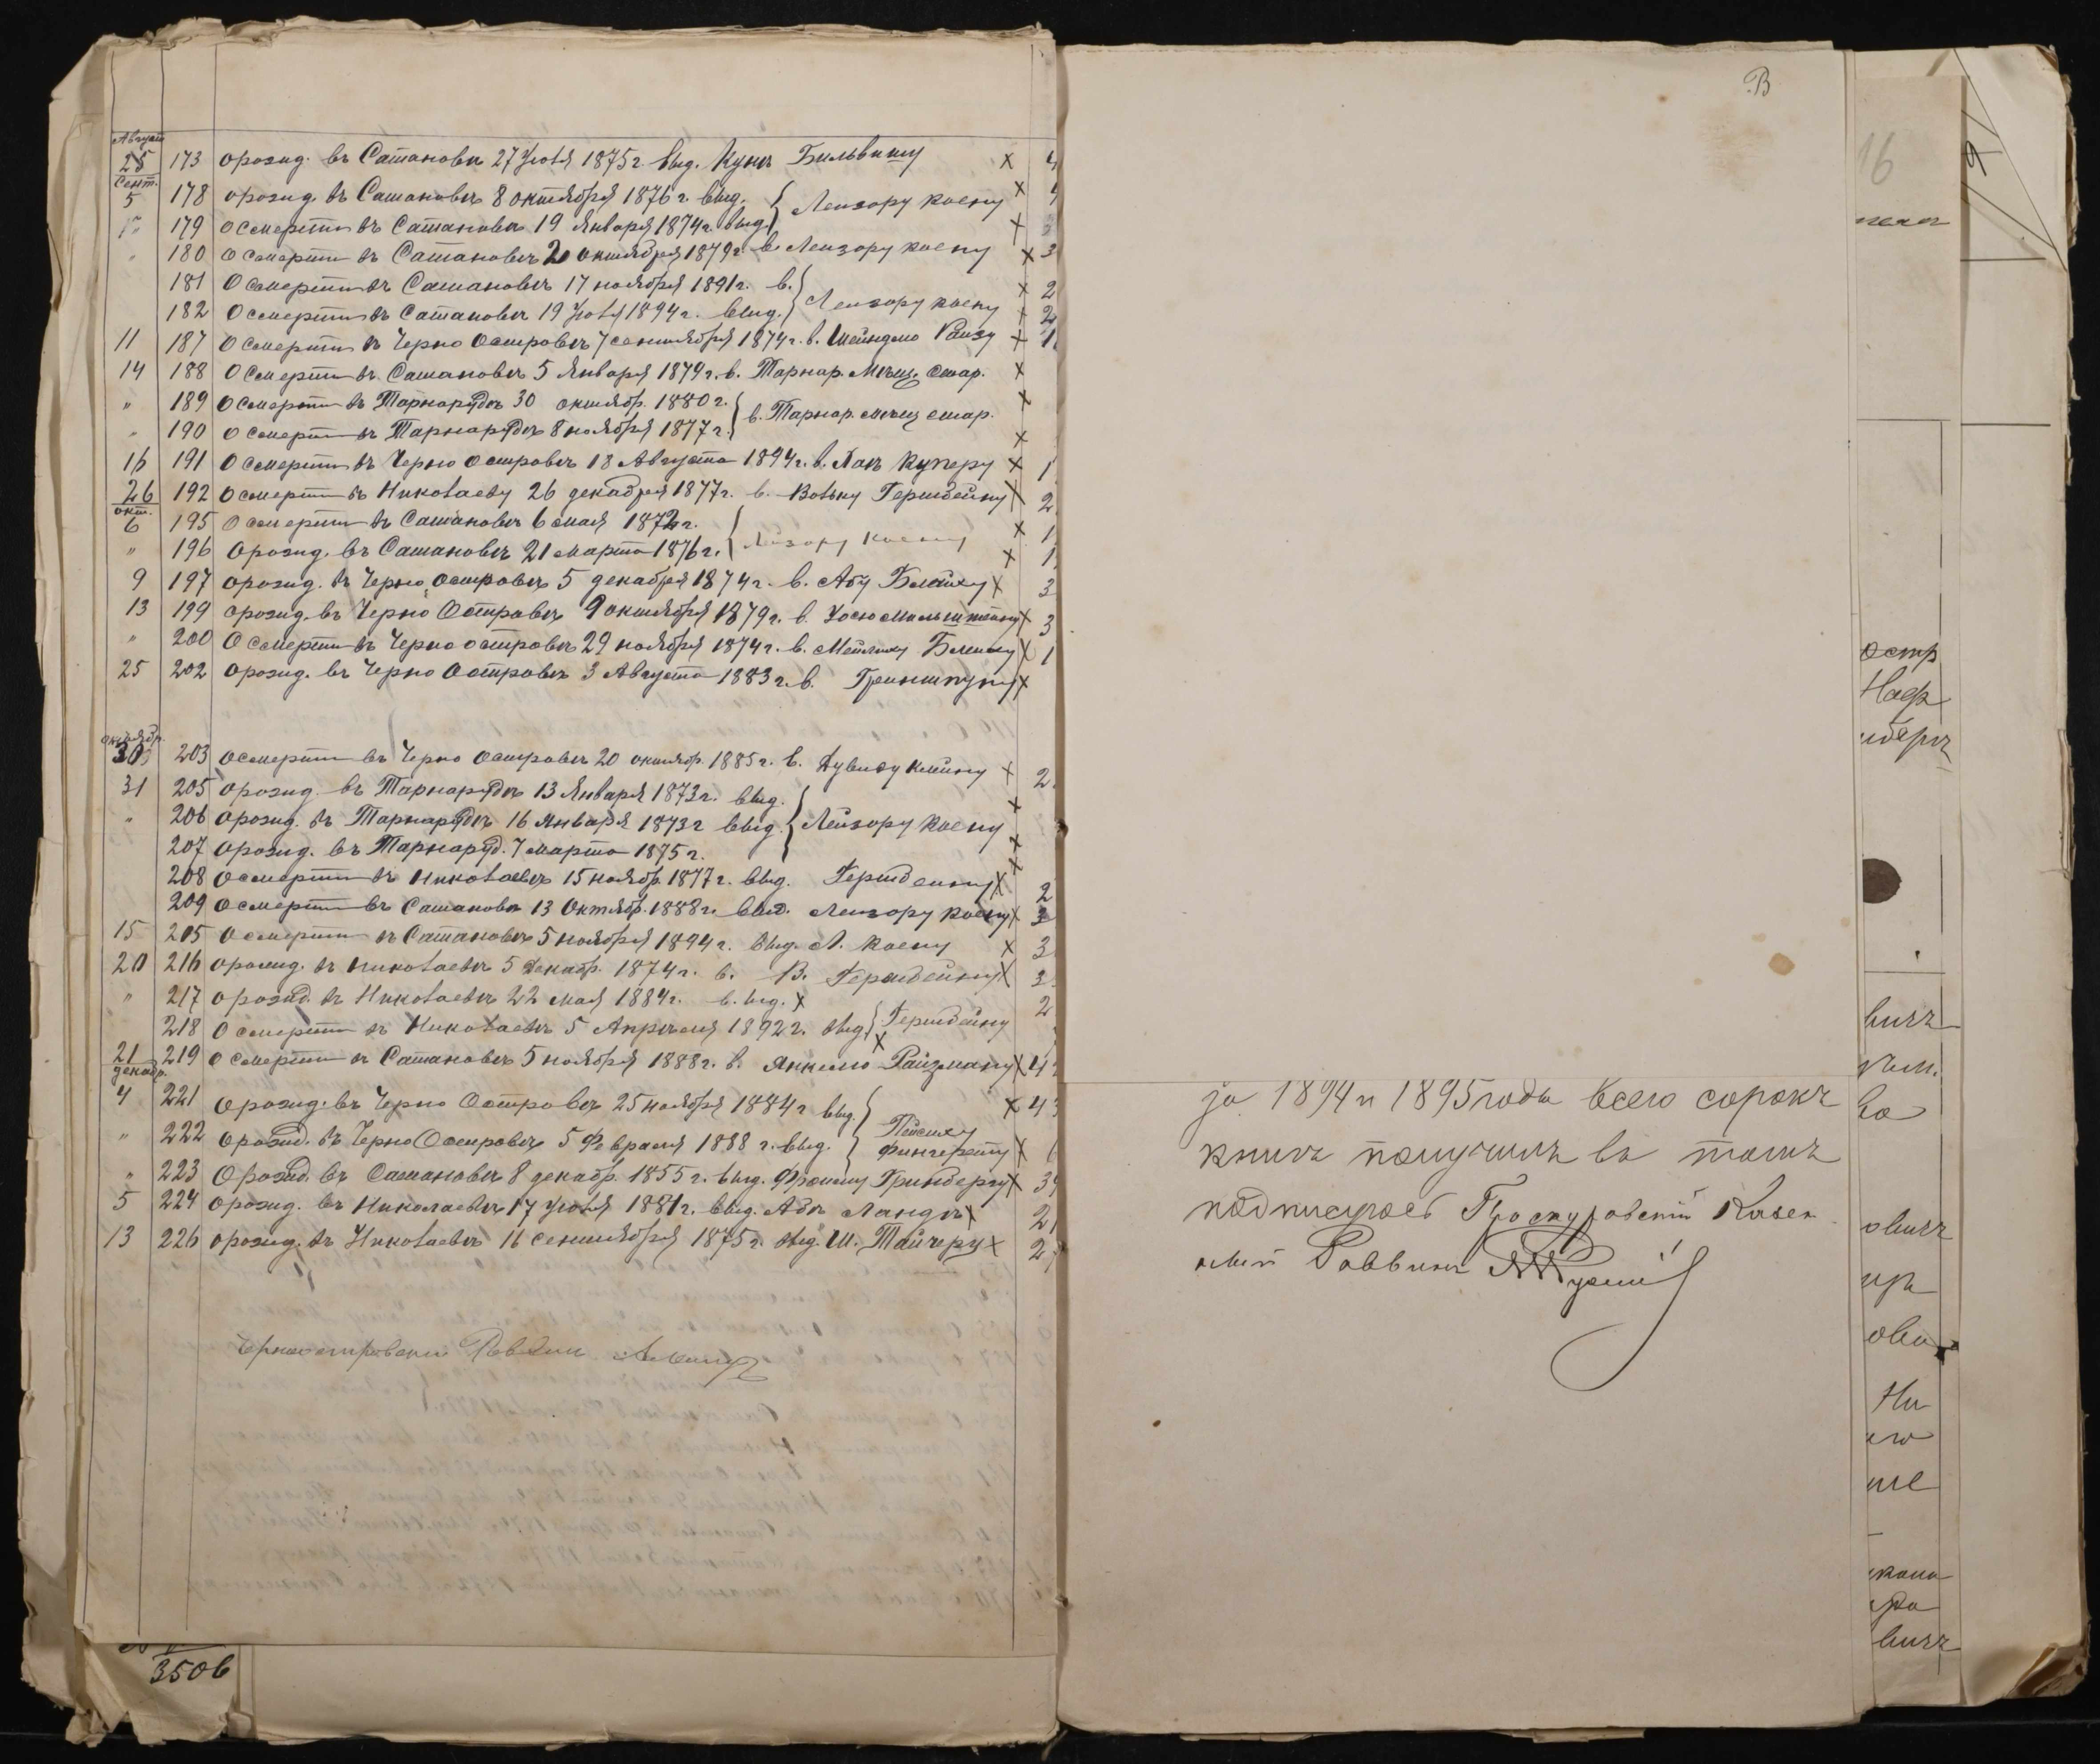 Август
25 173 о рожд. въ Сатановѣ 27 Іюля 1875 г. выд. Куни Бильвишу х 4
Сент.
5 178 о рожд. въ Сатановѣ 8 октября 1876 г. выд. Лейзору Коену х
179 о смерти въ Сатановѣ 19 Января 1874 г. выд. х
" 180 о смерти въ Сатановѣ 2 октября 1879 г. в. Лейзору Коену х 3
181 о смерти въ Сатановѣ 17 ноября 1891 г. в. х 2
182 о смерти въ Сатановѣ 19 Іюля 1894 г. выд. Лейзору Коену х 2
11 187 о смерти въ Черно Островѣ 7 сентября 1874 г. в. Шейндлю Раизу х 1
14 188 о смерти въ Сатановѣ 5 Января 1879 г. в. Тарнар. Мѣщ. стар. х
" 189 о смерти въ Тарнарудѣ 30 октябр. 1880 г. в. Тарнар. мѣщ стар. х
" 190 о смерти въ Тарнарудѣ 8 ноября 1877 г. х
16 191 о смерти въ Черно Островѣ 18 Августа 1894 г. в. Куперу х 1
26 192 о смерти въ Николаеву 26 декабря 1877 г. в. Вольку Герштейну х 2
окт.
6 195 о смерти въ Сатановѣ 6 мая 1872 г. х 1
" 196 о рожд. въ Сатановѣ 21 марта 1876 г. Лейзору Коену х 1
9 197 о рожд. въ Черно Островѣ 5 декабря 1874 г. в. Абу Блайху х 3
13 199 о рожд. въ Черно Островѣ 9 октября 1879 г. в. Іосю Мильштейну х 3
" 200 о смерти въ Черно островѣ 29 ноября 1874 г. в. х 1
25 202 о рожд. въ Черно Островѣ 3 Августа 1883 г. в. Гринштуну х
октябр.
30 203 о смерти въ Черно Островѣ 20 октябр. 1885 г. в. Дувиду Клейну х 2
31 205 о рожд. въ Тарнарудѣ 13 Января 1873 г. выд. х
" 206 о рожд. въ Тарнарудѣ 16 Января 1873 г выд. Лейзору Коену х
207 о рожд. въ Тарнаруд. 7 марта 1875 г. х
208 о смерти въ Николаевѣ 15 ноябр. 1877 г. выд. Герштейну х 2
209 о смерти въ Сатановѣ 13 Октябр. 1888 г. выд. Лейзору Коену х 3
15 215 о смерти въ Сатановѣ 5 ноября 1894 г. выд. Л. Коену х 3
20 216 о рожд. въ Николаевѣ 5 декабр. 1874 г. в. В. Герштейну х 3
" 217 о рожд. въ Николаевѣ 22 мая 1884 г. в. выд. х 2
218 о смерти въ Николаевѣ 5 Апрѣля 1892 г. выд. Герштейну х
21 219 о смерти въ Сатановѣ 5 ноября 1888 г. в. Янкелю Райзману х 4
декабр.
4 221 о рожд. въ Черно Островѣ 25 ноября 1884 г выд. х 43
" 222 о рожд. въ Черно Островѣ 5 Февраля 1888 г. выд. Пейсиху Фингеруту х
" 223 о рожд. въ Сатановѣ 8 декабр. 1855 г. выд. Гринбергу х 39
5 224 о рожд. въ Николаевѣ 17 Іюля 1881 г. выд. Абѣ Ландѣ х 21
13 226 о рожд. въ Николаевѣ 16 сентября 1875 г. выд. Ш. Тайчеру х 2
Черноостровскій Раввинъ
3506
В
за 1894 и 1895 годы всего сорокъ
книгъ получилъ въ томъ
подписуюсь Проскуровскій Казен
ный Раввинъ
16
остр
Наф
ибергъ